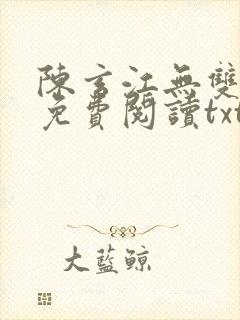 陳言江無雙
免費閱讀txt
大藍鯨